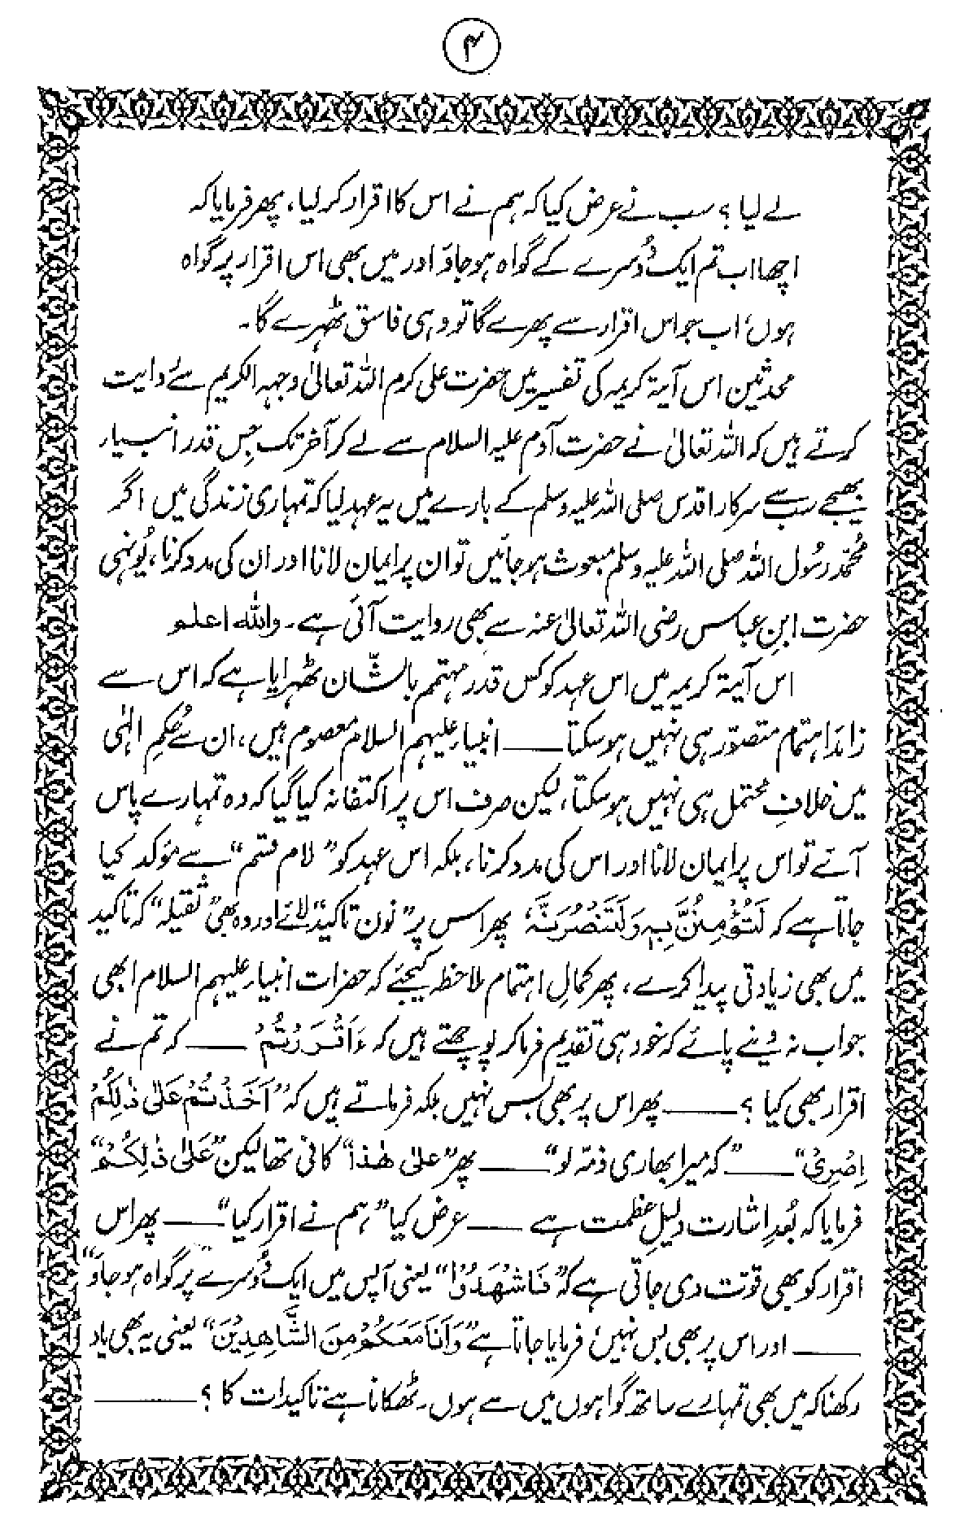 ۴
لے لیا ؟ سب نے عرض کیا کہ ہم نے اس کا اقرار کر لیا، پھر فرمایا کہ
اچھا اب تم ایک دُوسرے کے گواہ ہو جاؤ اور میں بھی اس اقرار پر گواہ
ہوں، اب جو اس اقرار سے پھرے گا تو وہی فاسق ٹھہرے گا۔
محدثین اس آیۃ کریمہ کی تفسیر میں حضرت علی کرم اللہ تعالیٰ وجہہ الکریم سے روایت
کرتے ہیں کہ اللہ تعالیٰ نے حضرت آدم علیہ السلام سے لے کر آخر تک جس قدر انبیاء
بھیجے سب سے سرکار اقدس صلی اللہ علیہ وسلم کے بارے میں یہ عہد لیا کہ تمہاری زندگی میں اگر
محمد رسُول اللہ صلی اللہ علیہ وسلم مبعوث ہو جائیں تو ان پر ایمان لانا اور ان کی مدد کرنا، یُونہی
حضرت ابنِ عباس رضی اللہ تعالیٰ عنہ سے بھی روایت آئی ہے۔ واللہ اعلم
اس آیۃ کریمہ میں اس عہد کو کس قدر مہتمم بالشّان ٹھہرایا ہے کہ اس سے
زائد اہتمام متصوّر ہی نہیں ہو سکتا ــــ انبیاء علیہم السلام معصوم ہیں، ان سے حُکمِ الٰہی
میں خلافِ محتمل ہی نہیں ہو سکتا، لیکن صرف اس پر اکتفا نہ کیا گیا کہ وہ تمہارے پاس
آئے تو اس پر ایمان لانا اور اس کی مدد کرنا، بلکہ اس عہد کو "لام قسم" سے مؤکد کیا
جاتا ہے کہ لَتُؤْمِنُنَّ بِهٖ وَلَتَنْصُرُنَّهٗ پھر اس پر "نون تاکید" لائے اور وہ بھی "ثقیلہ" کہ تاکید
میں بھی زیادتی پیدا کرے، پھر کمالِ اہتمام ملاحظہ کیجئے کہ حضرات انبیاء علیہم السلام ابھی
جواب نہ دینے پائے کہ خود ہی تقدیم فرما کر پوچھتے ہیں کہ ءَاَقْرَرْتُمْ ــــ کہ تم نے
اقرار بھی کیا ؟ ــــ پھر اس پر بھی بس نہیں بلکہ فرماتے ہیں کہ "اَخَذْتُمْ عَلٰی ذٰلِكُمْ
اِصْرِیْ" ــــ "کہ میرا بھاری ذمّہ لو" ــــ پھر "علیٰ ھٰذا" کافی تھا لیکن "عَلٰی ذٰلِكُمْ"
فرمایا کہ بُعدِ اشارت دلیلِ عظمت ہے ــــ عرض کیا "ہم نے اقرار کیا" ــــ پھر اس
اقرار کو بھی قوت دی جاتی ہے کہ "فَاشْهَدُوْا" یعنی آپس میں ایک دُوسرے پر گواہ ہو جاؤ"
ــــ اور اس پر بھی بس نہیں، فرمایا جاتا ہے "وَاَنَا مَعَكُمْ مِنَ الشّٰاهِدِيْنَ" یعنی یہ بھی یاد
رکھنا کہ میں بھی تمہارے ساتھ گواہوں میں سے ہوں۔ ٹھکانا ہے تاکیدات کا ؟ ــــ